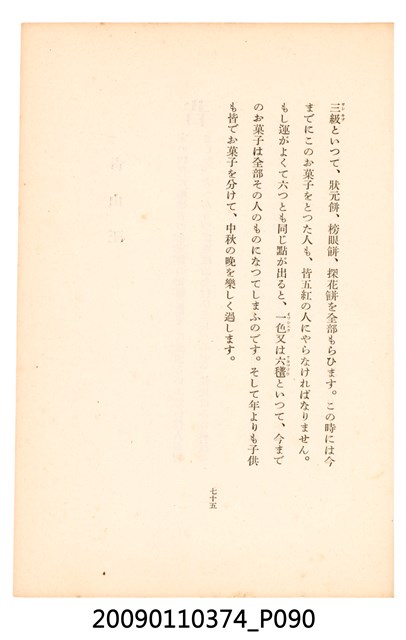 三級といつて、狀元餅、榜眼餅、探花餅を全部もらひます。この時には今
までにこのお菓子をとつた人も、皆五紅の人にやらなければなりません。
もし運がよくて六つとも同じ點が出ると、一色又は六𥣡といつて、今まで
のお菓子は全部その人のものになつてしまふのです。そして年よりも子供
も皆でお菓子を分けて、中秋の晚を樂しく過します。
七十五
20090110374_P090